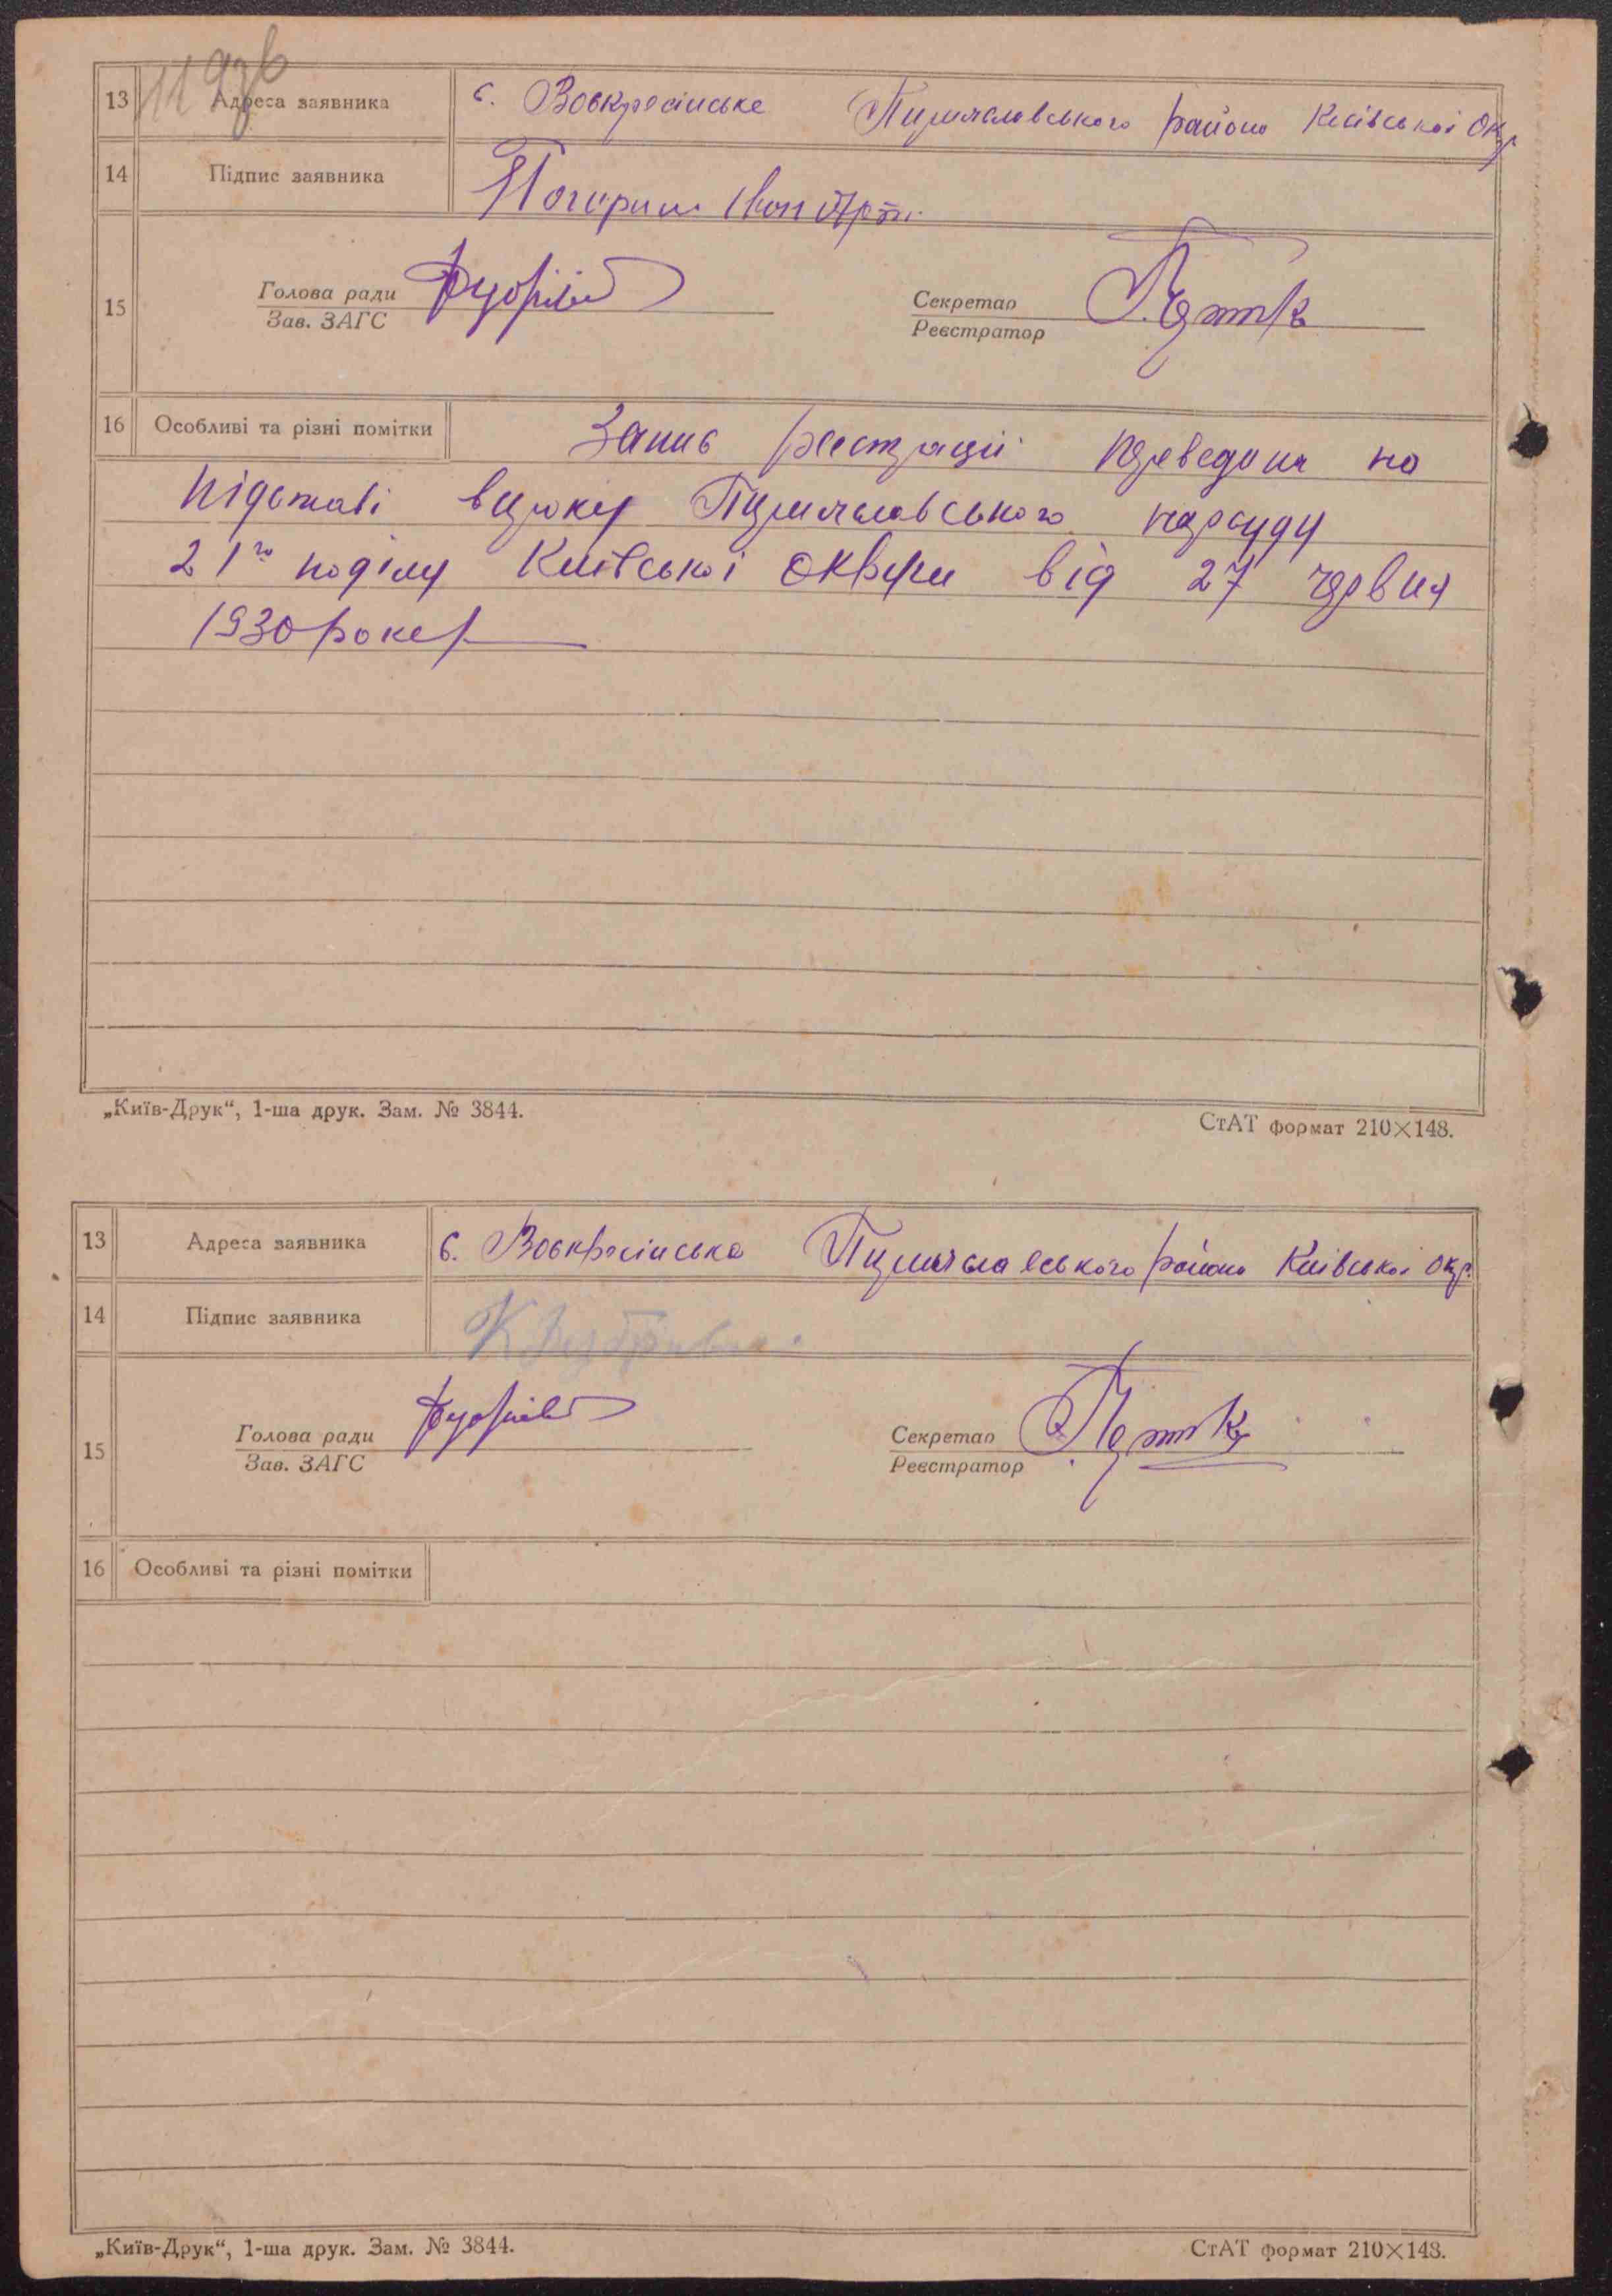 1193б
13 Адреса заявника с. Воскресінське Пирятинського району Київської Окр
14 Підпис заявника Погорил Іван
15 Голова ради
Зав. ЗАГС
Секретар
Реєстратор
16 Особливі та різні помітки Запис реєстрації проведена на
підставі вироку нарсуду
21го поділу Київської Округи від 27 червня
1930 року
„Київ-Друк“, 1-ша друк. Зам. № 3844.
СтАТ формат 210×148.
13 Адреса заявника с. Воскресінське району Київської Окр.
14 Підпис заявника
15 Голова ради
Зав. ЗАГС
Секретар
Реєстратор
16 Особливі та різні помітки
„Київ-Друк“, 1-ша друк. Зам. № 3844.
СтАТ формат 210×148.